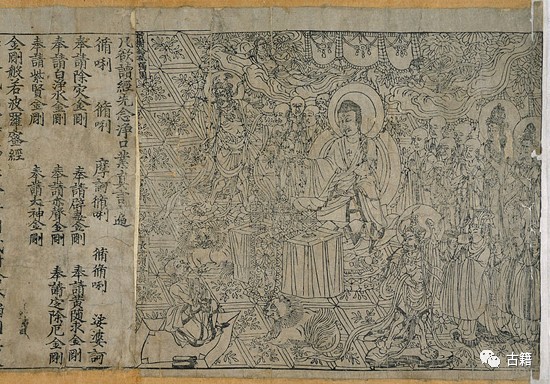 祇樹給孤獨園
凡欲讀經先念淨口業真言一遍
脩唎 脩唎 摩訶脩唎 脩脩唎 娑婆訶
奉請除灾金剛 奉請辟毒金剛 奉請黃隨求金剛
奉請白淨水金剛 奉請赤聲金剛 奉請定除厄金剛
奉請紫賢金剛 奉請大神金剛
金剛般若波羅蜜經
古籍